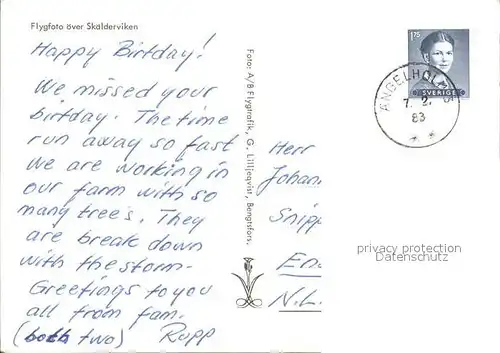 Flygfoto över Skälderviken
Happy Birtday!
We missed your
birtday. The time
run away so fast
we are working in
our farm with so
many trees. They
are break down
with the storm.
Greetings to you
all from fam.
(both two) Rupp
Foto: A/B Flygtrafik, G. Lilljeqvist, Bengtsfors.
1.75
SVERIGE
ÄNGELHOLM
7. 2.
83
Herr
Johan
Snipp
En
N.L.
privacy protection
Datenschutz